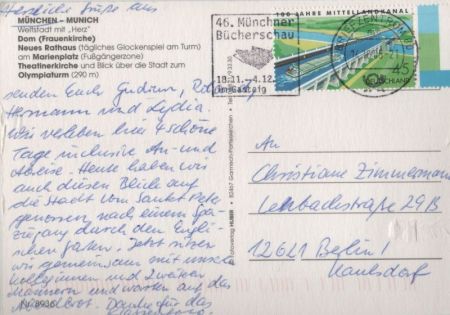 Herzliche Grüße aus
MÜNCHEN – MUNICH
Weltstadt mit „Herz"
Dom (Frauenkirche)
Neues Rathaus (tägliches Glockenspiel am Turm)
am Marienplatz (Fußgängerzone)
Theatinerkirche und Blick über die Stadt zum
Olympiaturm (290 m)
senden Euch Gudrun,
Hermann und Lydia.
Wir verleben hier 4 schöne
Tage inclusive An- und
Abreise. Heute haben wir
auch diesen Blick auf
die Stadt vom Sankt Peter
genossen, nach einem Spa-
ziergang durch den Engli-
schen Garten. Jetzt sitzen
wir gemeinsam mit unseren
Kolleginnen und 2 weiteren
Männern und warten auf das
Danke für das
Nr. 8936
© Fotoverlag HUBER · 82467 Garmisch-Partenkirchen
46. Münchner
Bücherschau
18.11.-4.12.
im Gasteig
100 JAHRE MITTELLANDKANAL
45
DEUTSCHLAND
BRIEFZENTRUM 80
An
Christiane Zimmermann
Lehrbachstraße 29B
12621 Berlin
Kaulsdorf